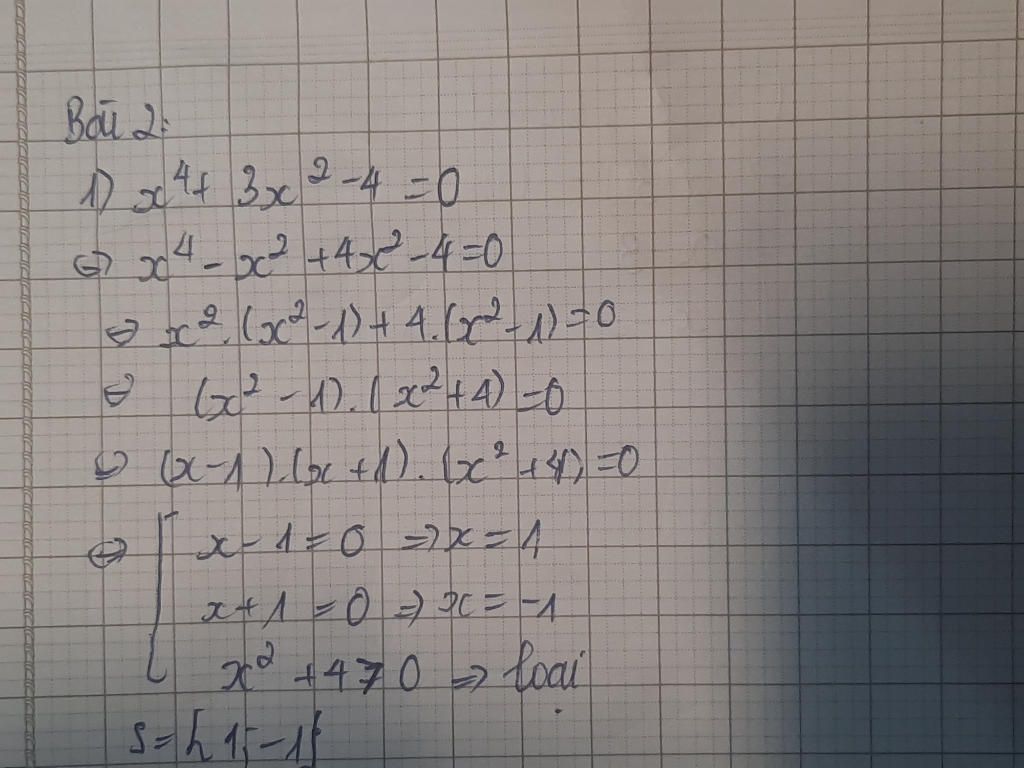 Bài 2:
1) x⁴ + 3x² - 4 = 0
⇔ x⁴ - x² + 4x² - 4 = 0
⇔ x².(x² - 1) + 4.(x² - 1) = 0
⇔ (x² - 1).(x² + 4) = 0
⇔ (x - 1).(x + 1).(x² + 4) = 0
⇔ [ x - 1 = 0 ⇒ x = 1
x + 1 = 0 ⇒ x = -1
x² + 4 > 0 ⇒ loại
S = {1; -1}